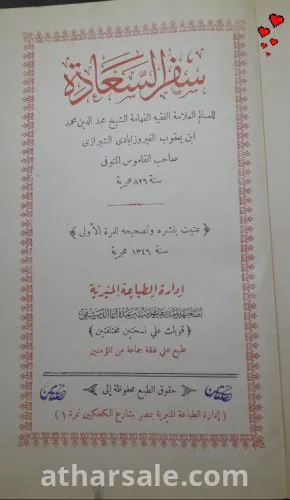 سفر السعادة
للعالم العلامة الفقيه الفهامة الشيخ مجد الدين محمد
ابن يعقوب الفيروزابادى الشيرازى
صاحب القاموس المتوفى
سنة ٨٢٦ هجرية
﴿ عنيت بنشره وتصحيحه للمرة الأولى ﴾
سنة ١٣٤٦ هجرية
إدارة الطباعة المنيرية
لصاحبها ومديرها محمد منير عبده اغا الدمشقى
﴿ قوبلت على نسختين مختلفتين ﴾
طبع على نفقة جماعة من المؤمنين
حقوق الطبع محفوظة إلى
( إدارة الطباعة المنيرية بمصر بشارع الكحكيين نمرة ١ )
atharsale.com